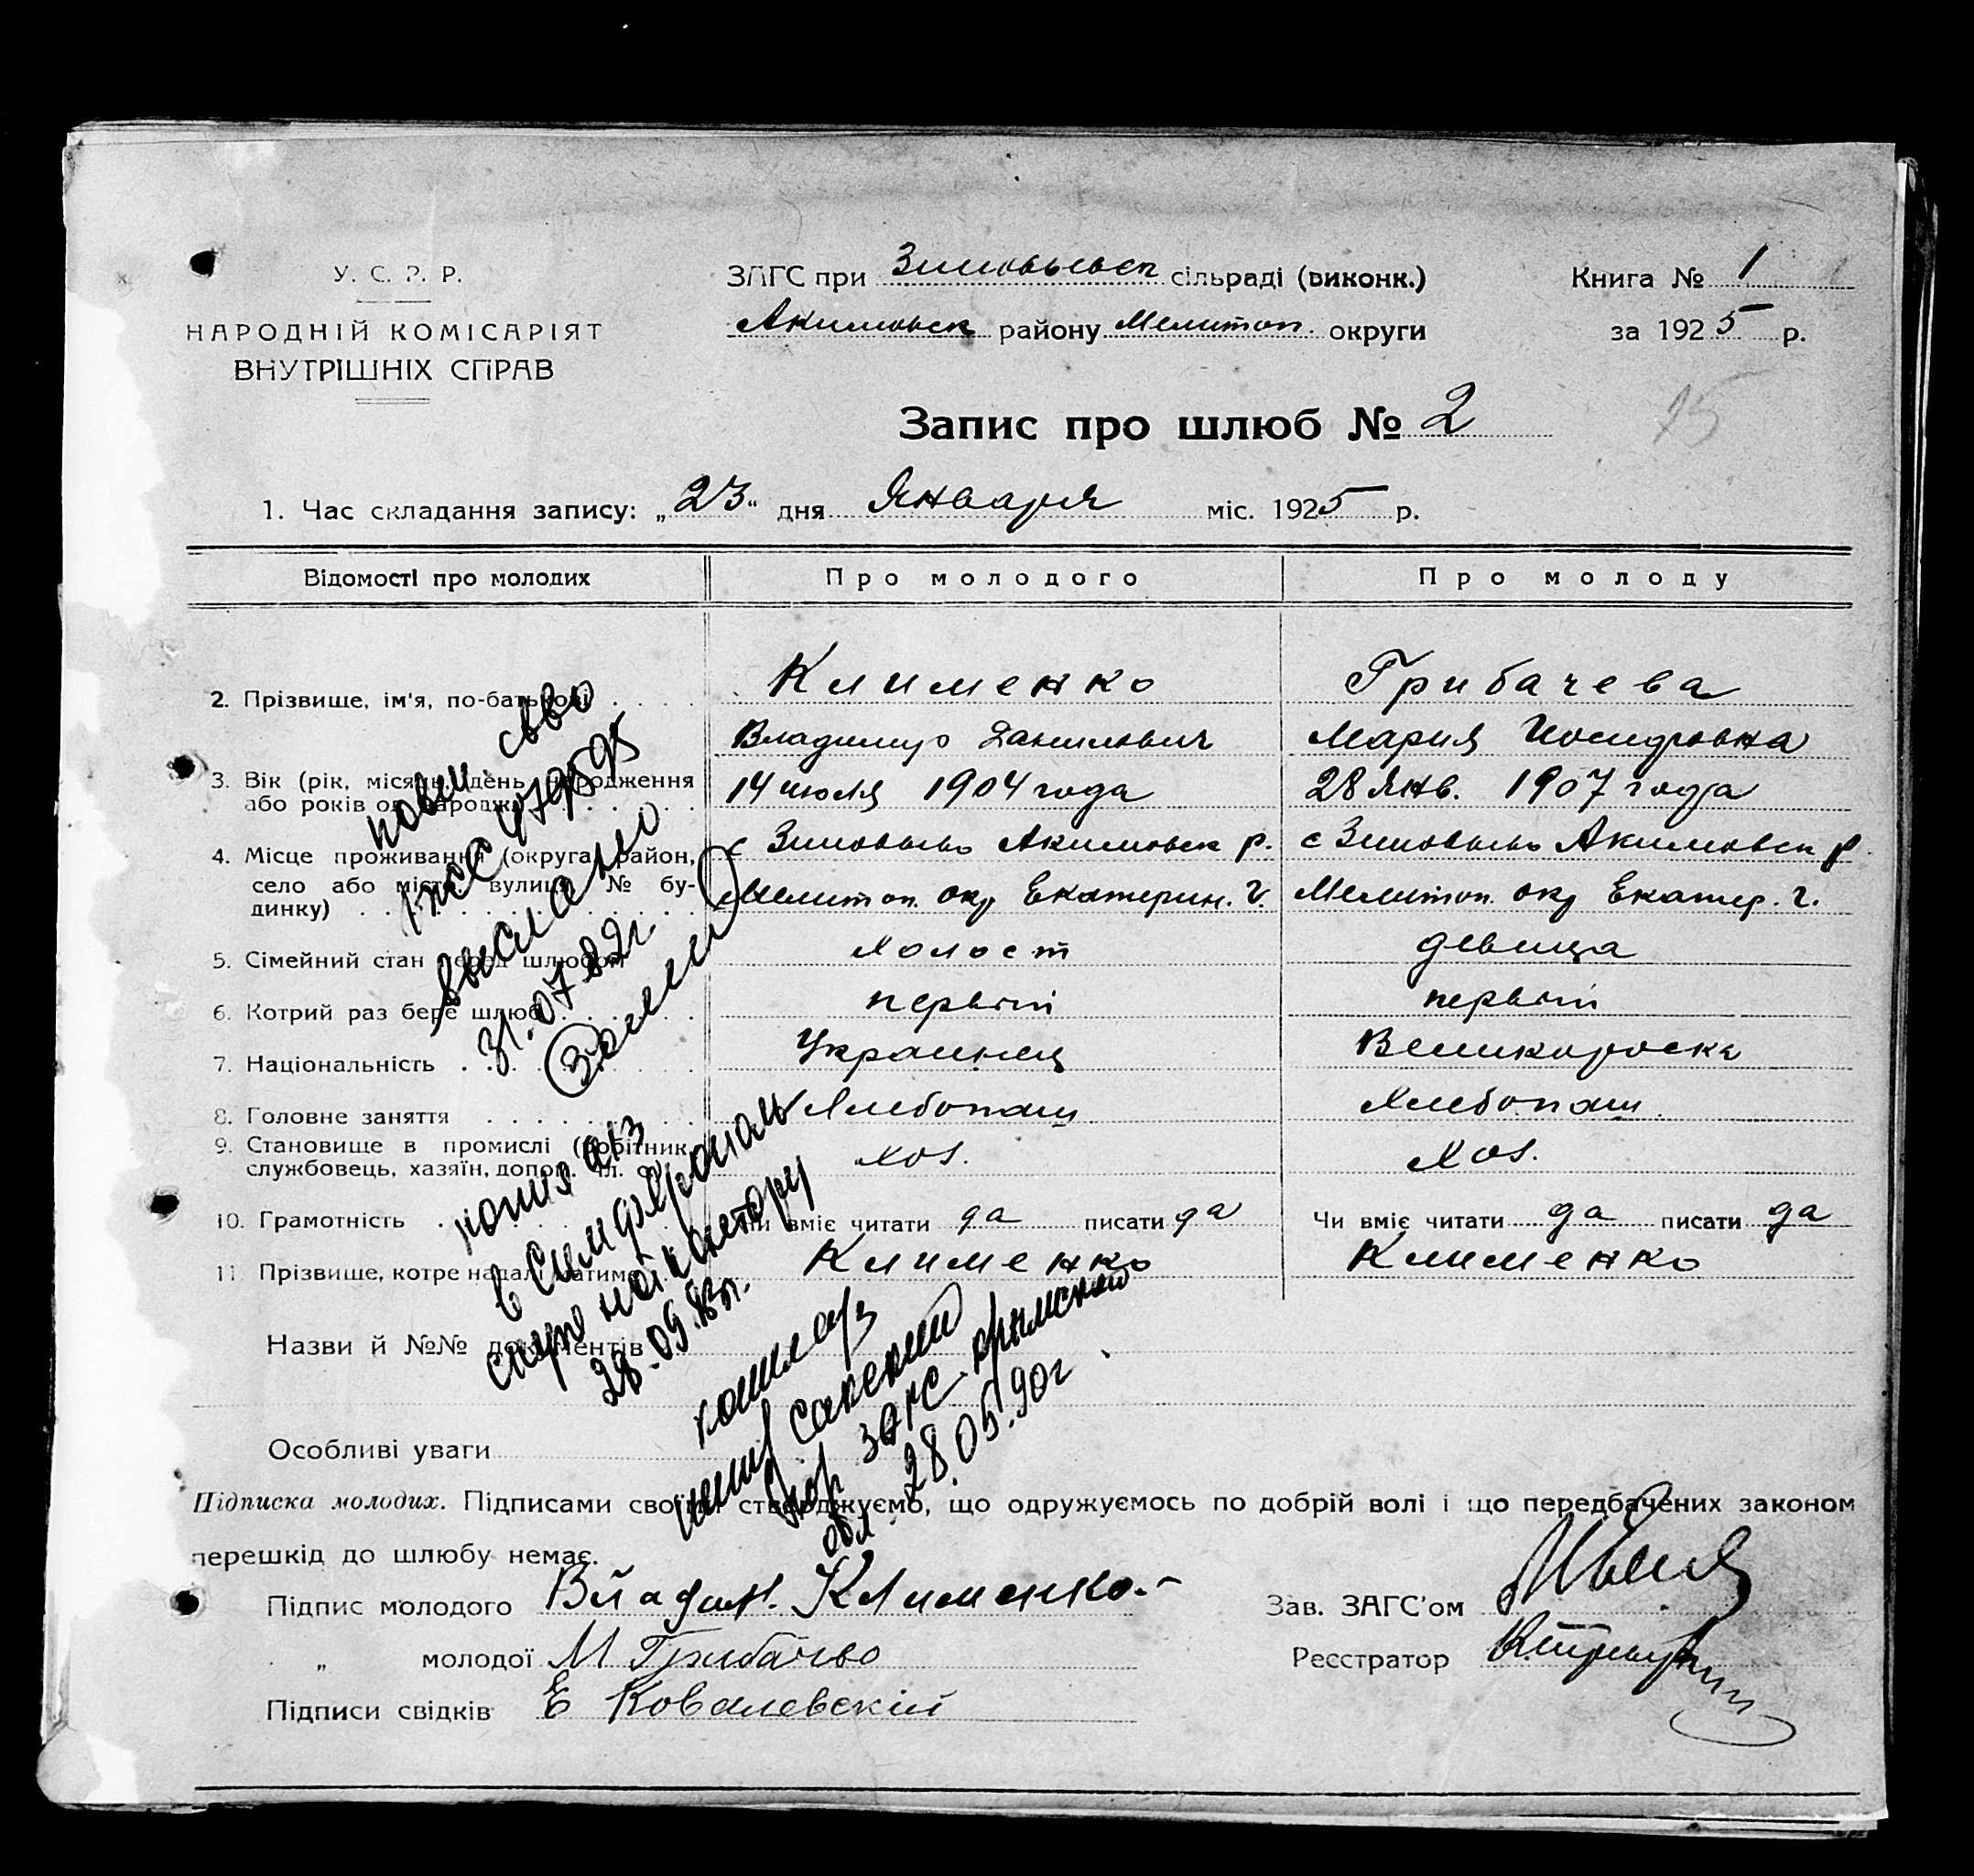 У. С. Р. Р.
НАРОДНІЙ КОМІСАРІЯТ
ВНУТРІШНІХ СПРАВ
ЗАГС при сільраді (виконк.)
Акимовск району Мелитоп. округи
Книга № 1
за 1925 р.
15
Запис про шлюб № 2
1. Час складання запису: „23“ дня Января міс. 1925 р.
Відомості про молодих Про молодого Про молоду
2. Прізвище, ім'я, по-батькові Клименко Грибачева
Владимир Данилович Мария
3. Вік (рік, місяць, день народження або років од народж.) 14 июля 1904 года 28 Янв. 1907 года
4. Місце проживання (округа, район, с Акимовск р. с Акимовск р
село або місто, вулиця, № бу-
динку) Мелитоп. окр Екатерин. г. Мелитоп. окр Екатер. г.
5. Сімейний стан перед шлюбом холост девица
6. Котрий раз бере шлюб первый первый
7. Національність Украинец Великороска
8. Головне заняття Хлебопаш Хлебопаш.
9. Становище в промислі (робітник, службовець, хазяїн, допом. чл. с. Хоз. Хоз.
10. Грамотність Чи вміє читати да писати да Чи вміє читати да писати да
11. Прізвище, котре надалі матиме Клименко Клименко
Назви й №№ документів
Особливі уваги
повт. св-во
479595
выслано
31.07.82г.
копия а/з
в Симферополь
нотконтору
28.09.83г.
копия а/з
сакский
загс крымской
обл 28.05.90г
Підписка молодих. Підписами своїми стверджуємо, що одружуємось по добрій волі і що передбачених законом
перешкід до шлюбу немає.
Підпис молодого Владим. Клименко.
„ молодої М Грибачево
Підписи свідків Е Ковалевскій
Зав. ЗАГС'ом
Реєстратор